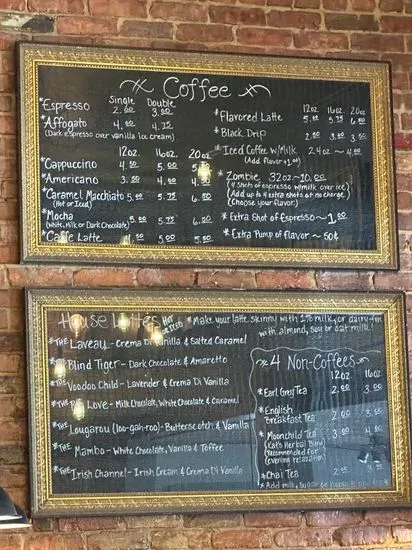 Coffee
Single Double
*Espresso 2.00 3.00
*Affogato 4.00 4.75
(Dark espresso over vanilla ice cream)
12oz. 16oz. 20oz
*Cappuccino 4.50 5.00
*Americano 3.50 4.00 4.50
*Caramel Macchiato 5.00 5.75 6.50
(Hot or Iced)
*Mocha 5.00 5.75 6.50
(White, Milk or Dark Chocolate)
*Caffe Latte 4.50 5.00
12oz. 16oz. 20oz
*Flavored Latte 5.00 5.75 6.50
*Black Drip 2.50 3.00 3.50
*Iced Coffee w/Milk 24oz ~ 4.00
(Add flavor +1.00)
*Zombie 32oz ~ 10.00
(4 shots of espresso w/milk over ice)
(Add up to 4 extra shots at no charge)
(Choose your flavor)
*Extra Shot of Espresso ~ 1.00
*Extra Pump of Flavor ~ 50¢
House Lattes HOT or ICED
*Make your latte skinny with 1% milk, or dairy-free
with almond, soy or oat milk!
*THE Laveau - Crema Di Vanilla & Salted Caramel
*THE Blind Tiger - Dark Chocolate & Amaretto
*THE Voodoo Child - Lavender & Crema Di Vanilla
*THE Love - Milk Chocolate, White Chocolate & Caramel
*THE Lougarou (loo-gah-roo) - Butterscotch & Vanilla
*THE Mambo - White Chocolate, Vanilla & Toffee
*THE Irish Channel - Irish Cream & Crema Di Vanilla
4 Non-Coffees
12oz 16oz
*Earl Grey Tea 2.00 3.00
*English
Breakfast Tea 2.00 3.00
*Moonchild Tea 3.00 4.00
(Kat's Herbal Blend)
(Recommended for
evening relaxation)
*Chai Tea
*Add milk, sugar or honey